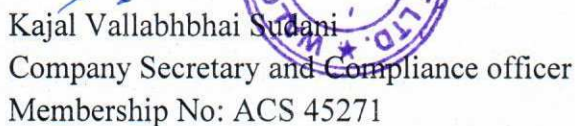 LTD.
Kajal Vallabhbhai Sudani
Company Secretary and Compliance officer
Membership No: ACS 45271